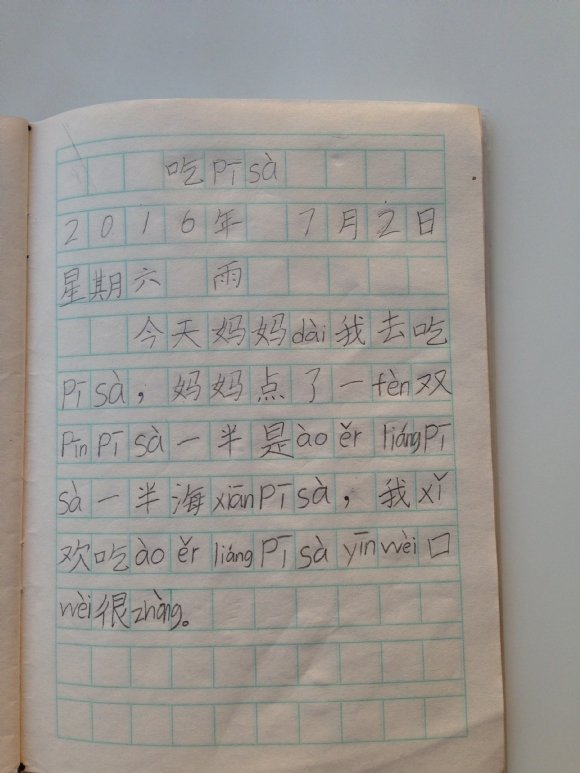 吃pīsà
2016年 7月2日
星期六 雨
今天妈妈dài我去吃
pīsà，妈妈点了一fèn双
pīnpīsà一半是àoěrliángpī
sà一半海xiānpīsà，我xǐ
欢吃àoěrliángpīsàyīnwèi口
wèi很zhàng。